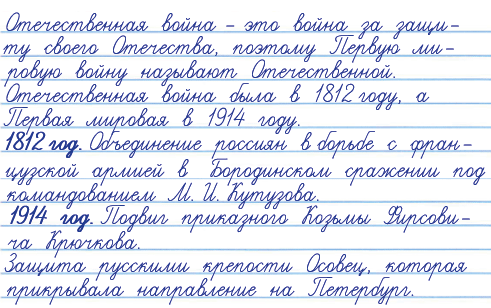 Отечественная война – это война за защи-
ту своего Отечества, поэтому Первую ми-
ровую войну называют Отечественной.
Отечественная война была в 1812 году, а
Первая мировая в 1914 году.
1812 год. Объединение россиян в борьбе с фран-
цузской армией в Бородинском сражении под
командованием М. И. Кутузова.
1914 год. Подвиг приказного Козьмы Фирсови-
ча Крючкова.
Защита русскими крепости Осовец, которая
прикрывала направление на Петербург.